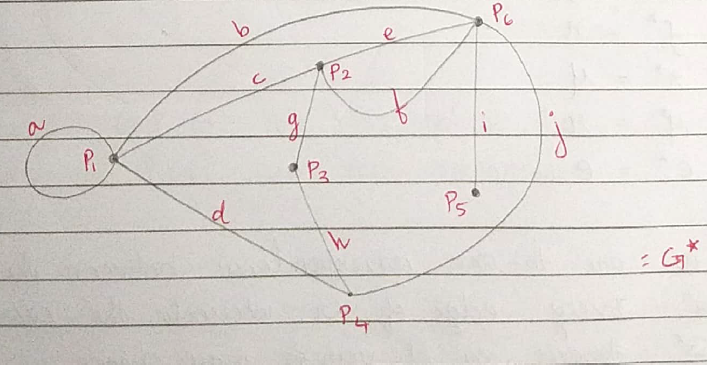 b
P6
e
c
P2
a
g
f
i
j
P1
P3
P5
d
h
= G*
P4